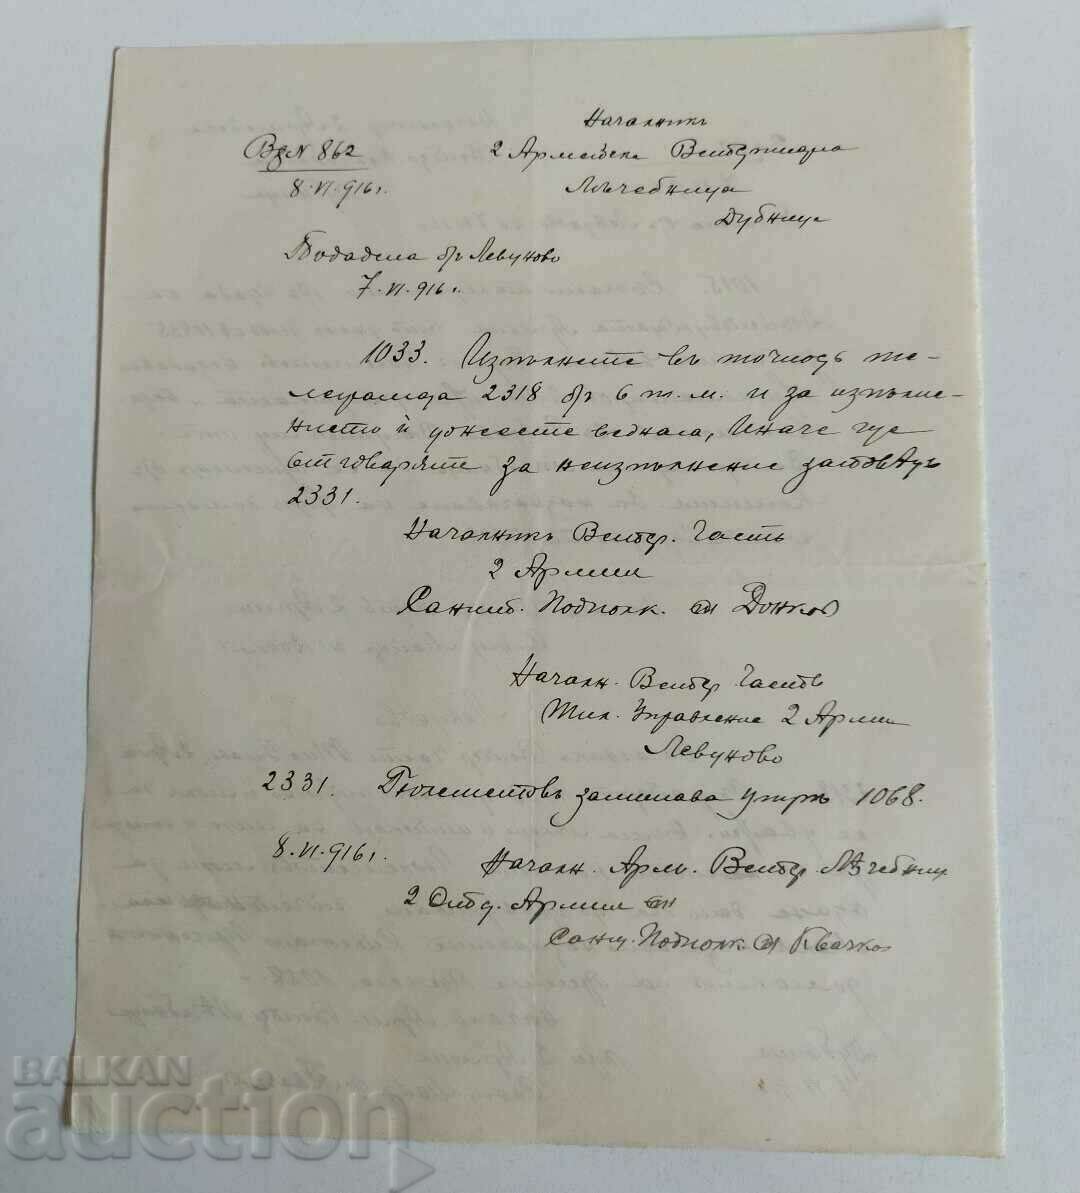 Началникъ
Вх № 862
2 Армейска Ветеринарна
8.VI.916 г.
Лѣчебница
Дубница
Подадена отъ Левуново
7.VI.916 г.
1033. Изпълнете въ точность те-
леграмата 2318 отъ 6 т.м. и за изпълне-
нието ѝ донесете веднага, Иначе ще
отговаряте за неизпълнение заповѣдь
2331.
Началникъ Ветер. Часть
2 Армия
Санит. Подполк. Донков
Началн. Ветер Часть
Тил. Управление 2 Армия
Левуново
2331. заминава утрѣ 1068.
8.VI.916 г.
Началн. Арм. Ветер. Лѣчебниц
2 Отд. Армия
Сани. Подполк.
BALKAN
auction